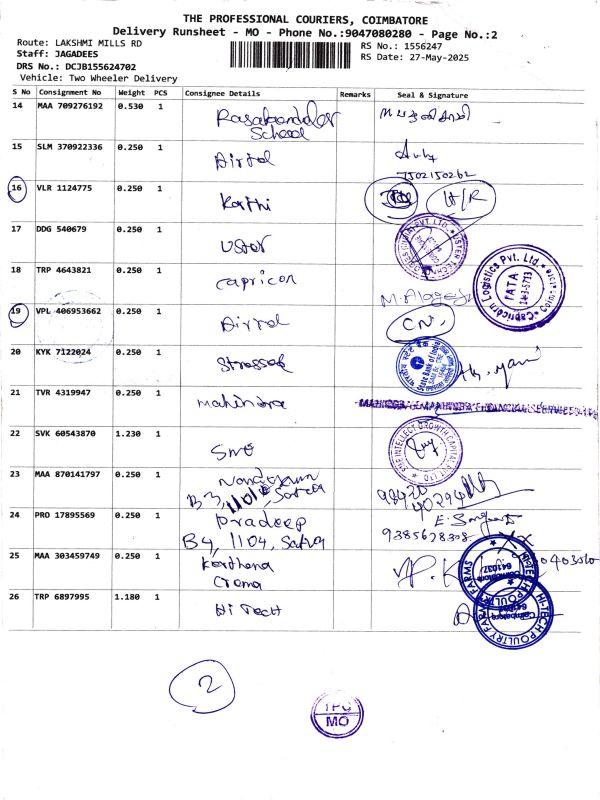 THE PROFESSIONAL COURIERS, COIMBATORE
Delivery Runsheet - MO - Phone No.:9047080280 - Page No.:2
Route: LAKSHMI MILLS RD
Staff: JAGADEES
DRS No.: DCJB155624702
Vehicle: Two Wheeler Delivery
RS No.: 1556247
RS Date: 27-May-2025
S No Consignment No Weight PCS Consignee Details Remarks Seal & Signature
14 MAA 709276192 0.530 1
School
15 SLM 370922336 0.250 1 Airtel
7502150262
16 VLR 1124775 0.250 1 Karthi H/R
17 DDG 540679 0.250 1 Uster
18 TRP 4643821 0.250 1 Capricon
Capricorn Logistics Pvt. Ltd. Coimbatore
TATA
19 VPL 406953662 0.250 1 Airtel CN.
20 KYK 7122024 0.250 1
State Bank of India
21 TVR 4319947 0.250 1 Mahindra
22 SVK 60543870 1.230 1
INTELLECT GROWTH CAPITAL PVT LTD
23 MAA 870141797 0.250 1
24 PRO 17895569 0.250 1 Pradeep
B4, 1104,
9385678308
25 MAA 303459749 0.250 1
Crema
26 TRP 6897995 1.180 1 Hi Tech
HI-TECH POULTRY FARMS
Coimbatore
641037
2
TPC
MO